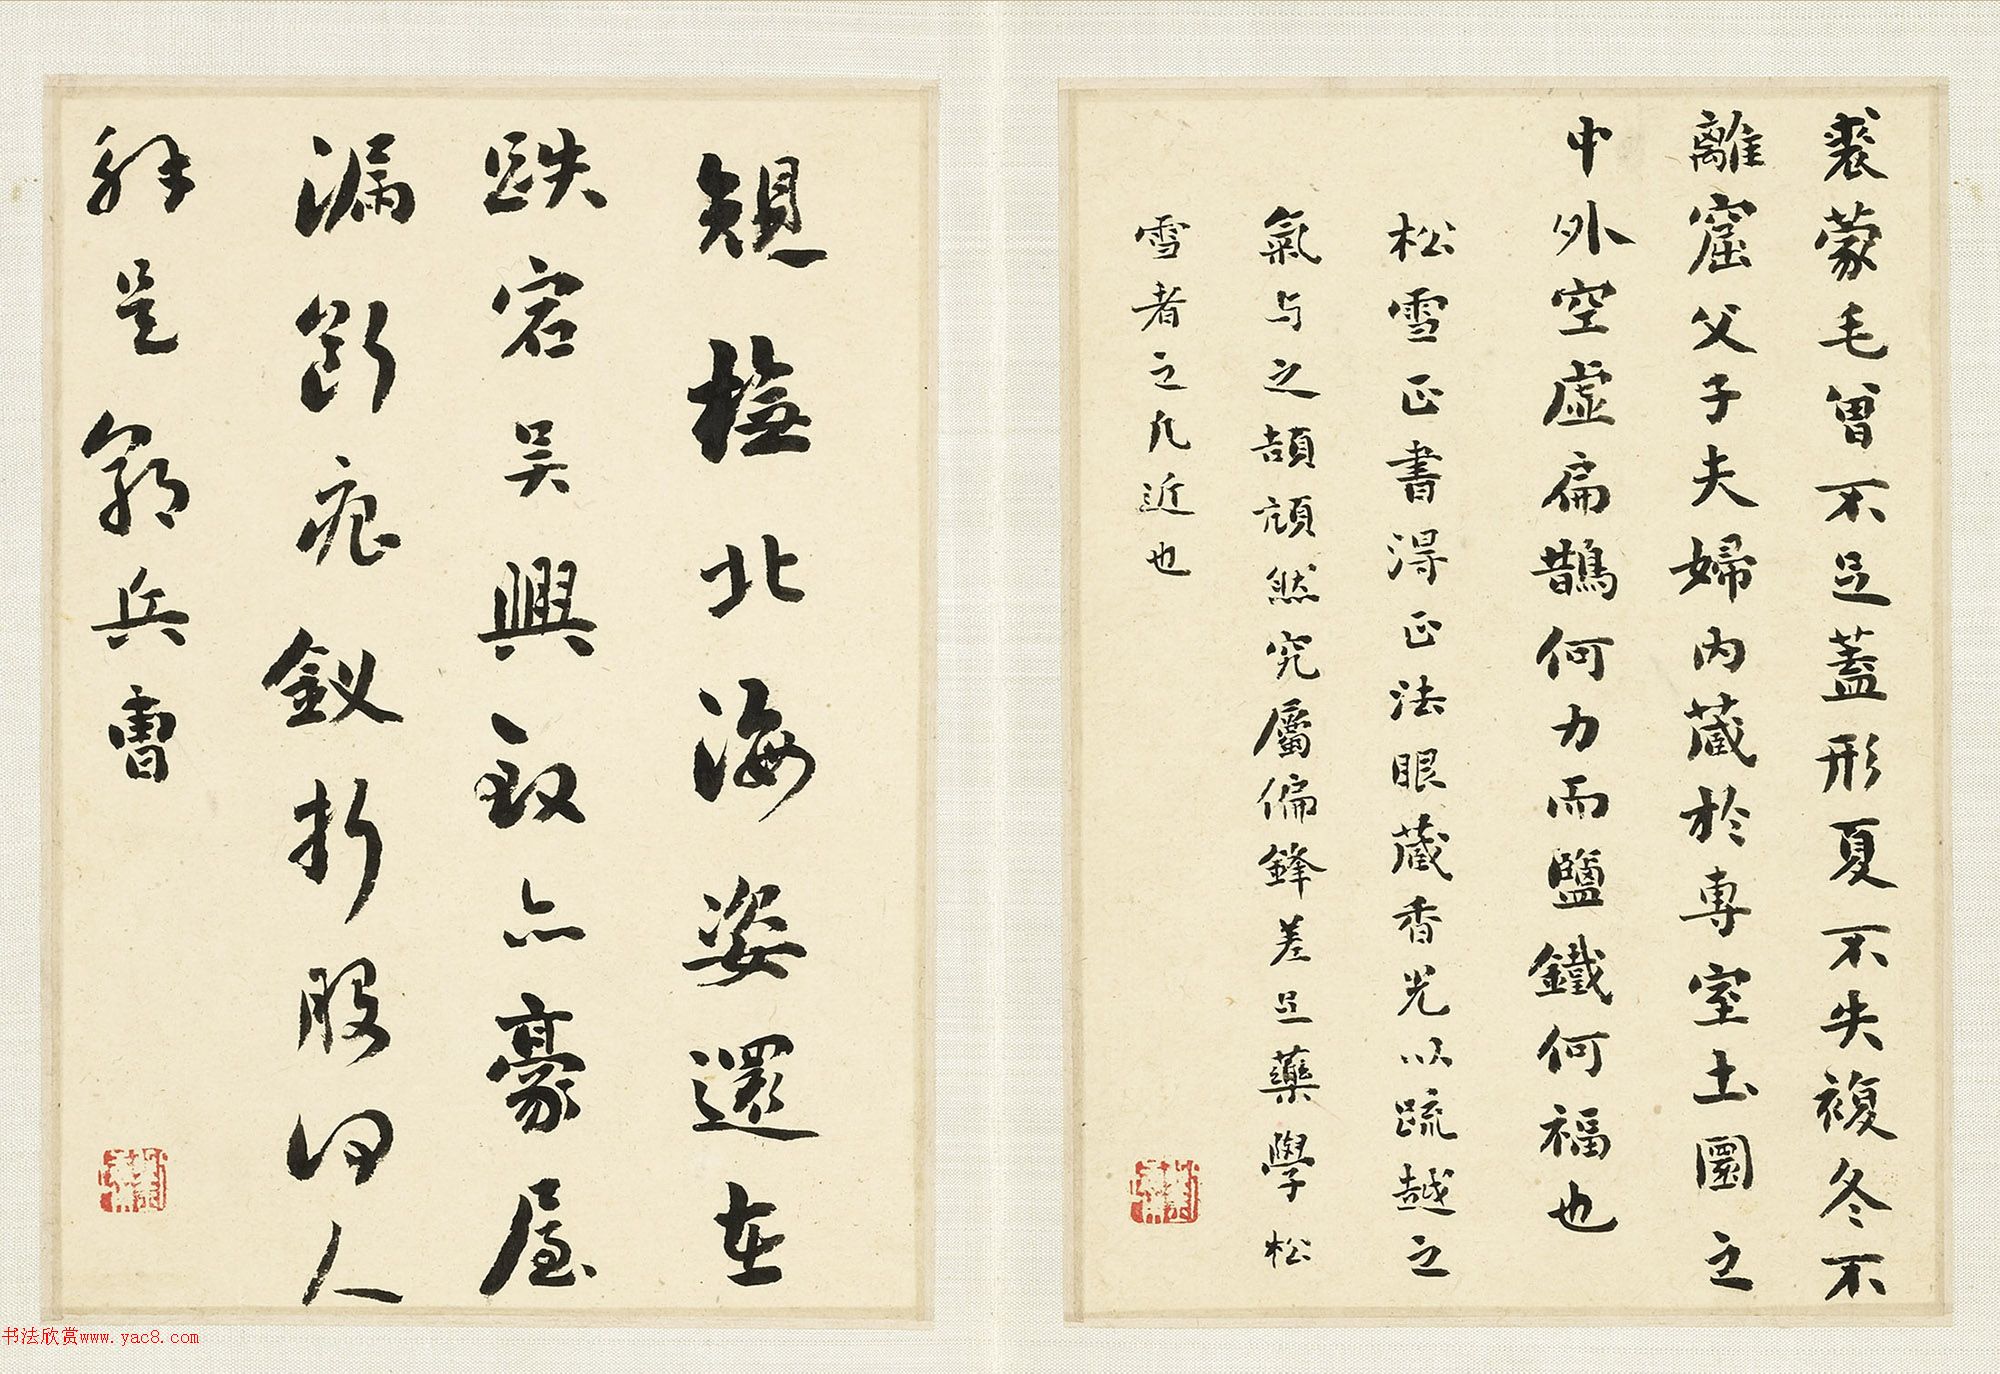 裘蒙毛曾不足蓋形夏不失複冬不
離窟父子夫婦内蔵於專室土圜之
中外空虚扁鵲何力而鹽鐵何福也
松雪正書淂正法眼蔵香光以疏越之
氣与之頡頏然究屬偏鋒差足藥學松
雪者之凡近也
規橅北海姿還在
跌宕吴興致亦豪屋
漏断痕釵折股何人
解是郭兵曹
书法欣赏www.yac8.com